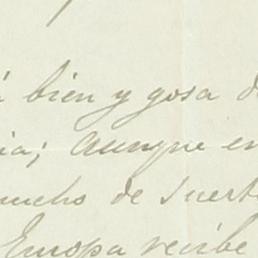 bien y gosa d
ia; aunque en
mucho de suert
Europa recibe